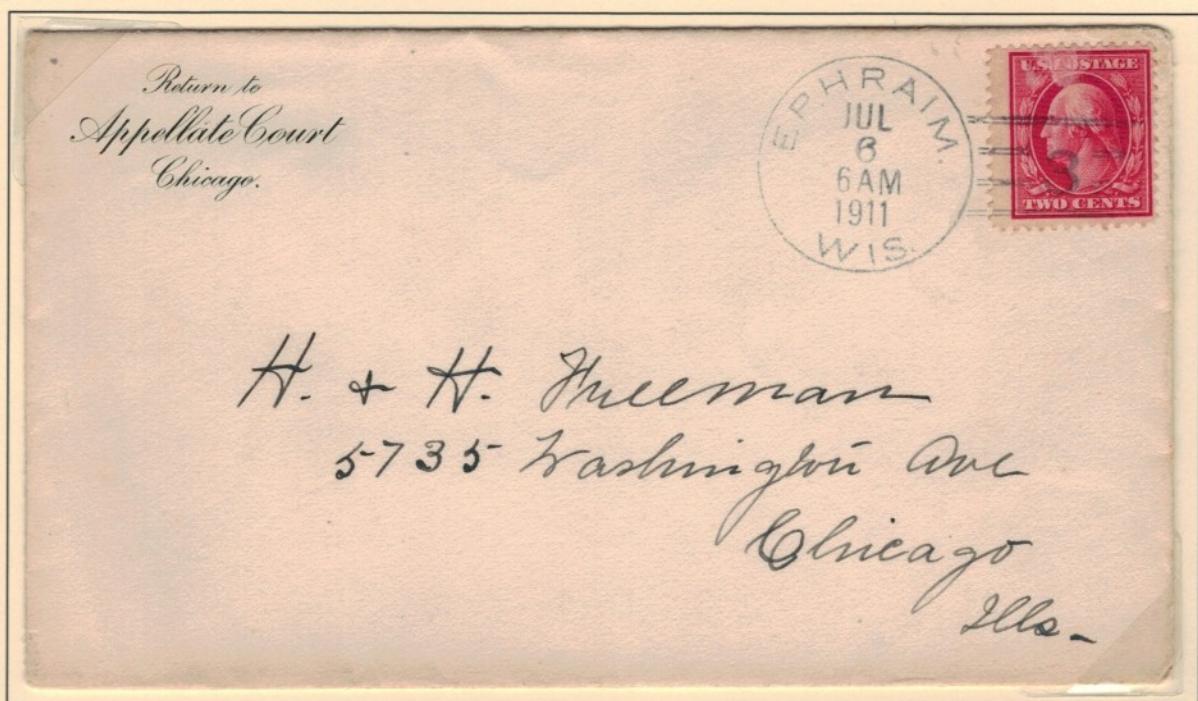 Return to
Appellate Court
Chicago.
EPHRAIM.
JUL
6
6AM
1911
WIS.
U.S. POSTAGE
3
TWO CENTS
H. & H. Freeman
5735 Washington Ave
Chicago
Ills-